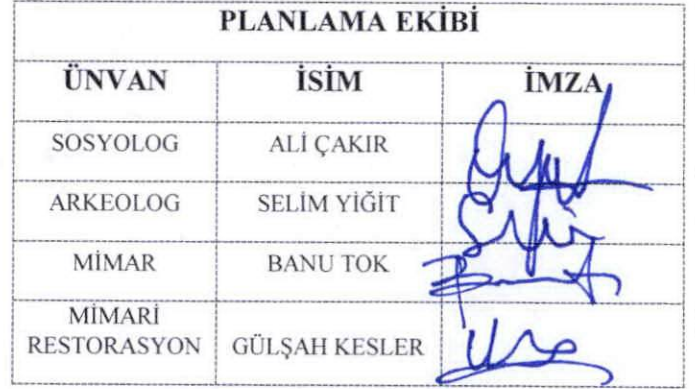 PLANLAMA EKİBİ
ÜNVAN İSİM İMZA
SOSYOLOG ALİ ÇAKIR
ARKEOLOG SELİM YİĞİT
MİMAR BANU TOK
MİMARİ
RESTORASYON GÜLŞAH KESLER